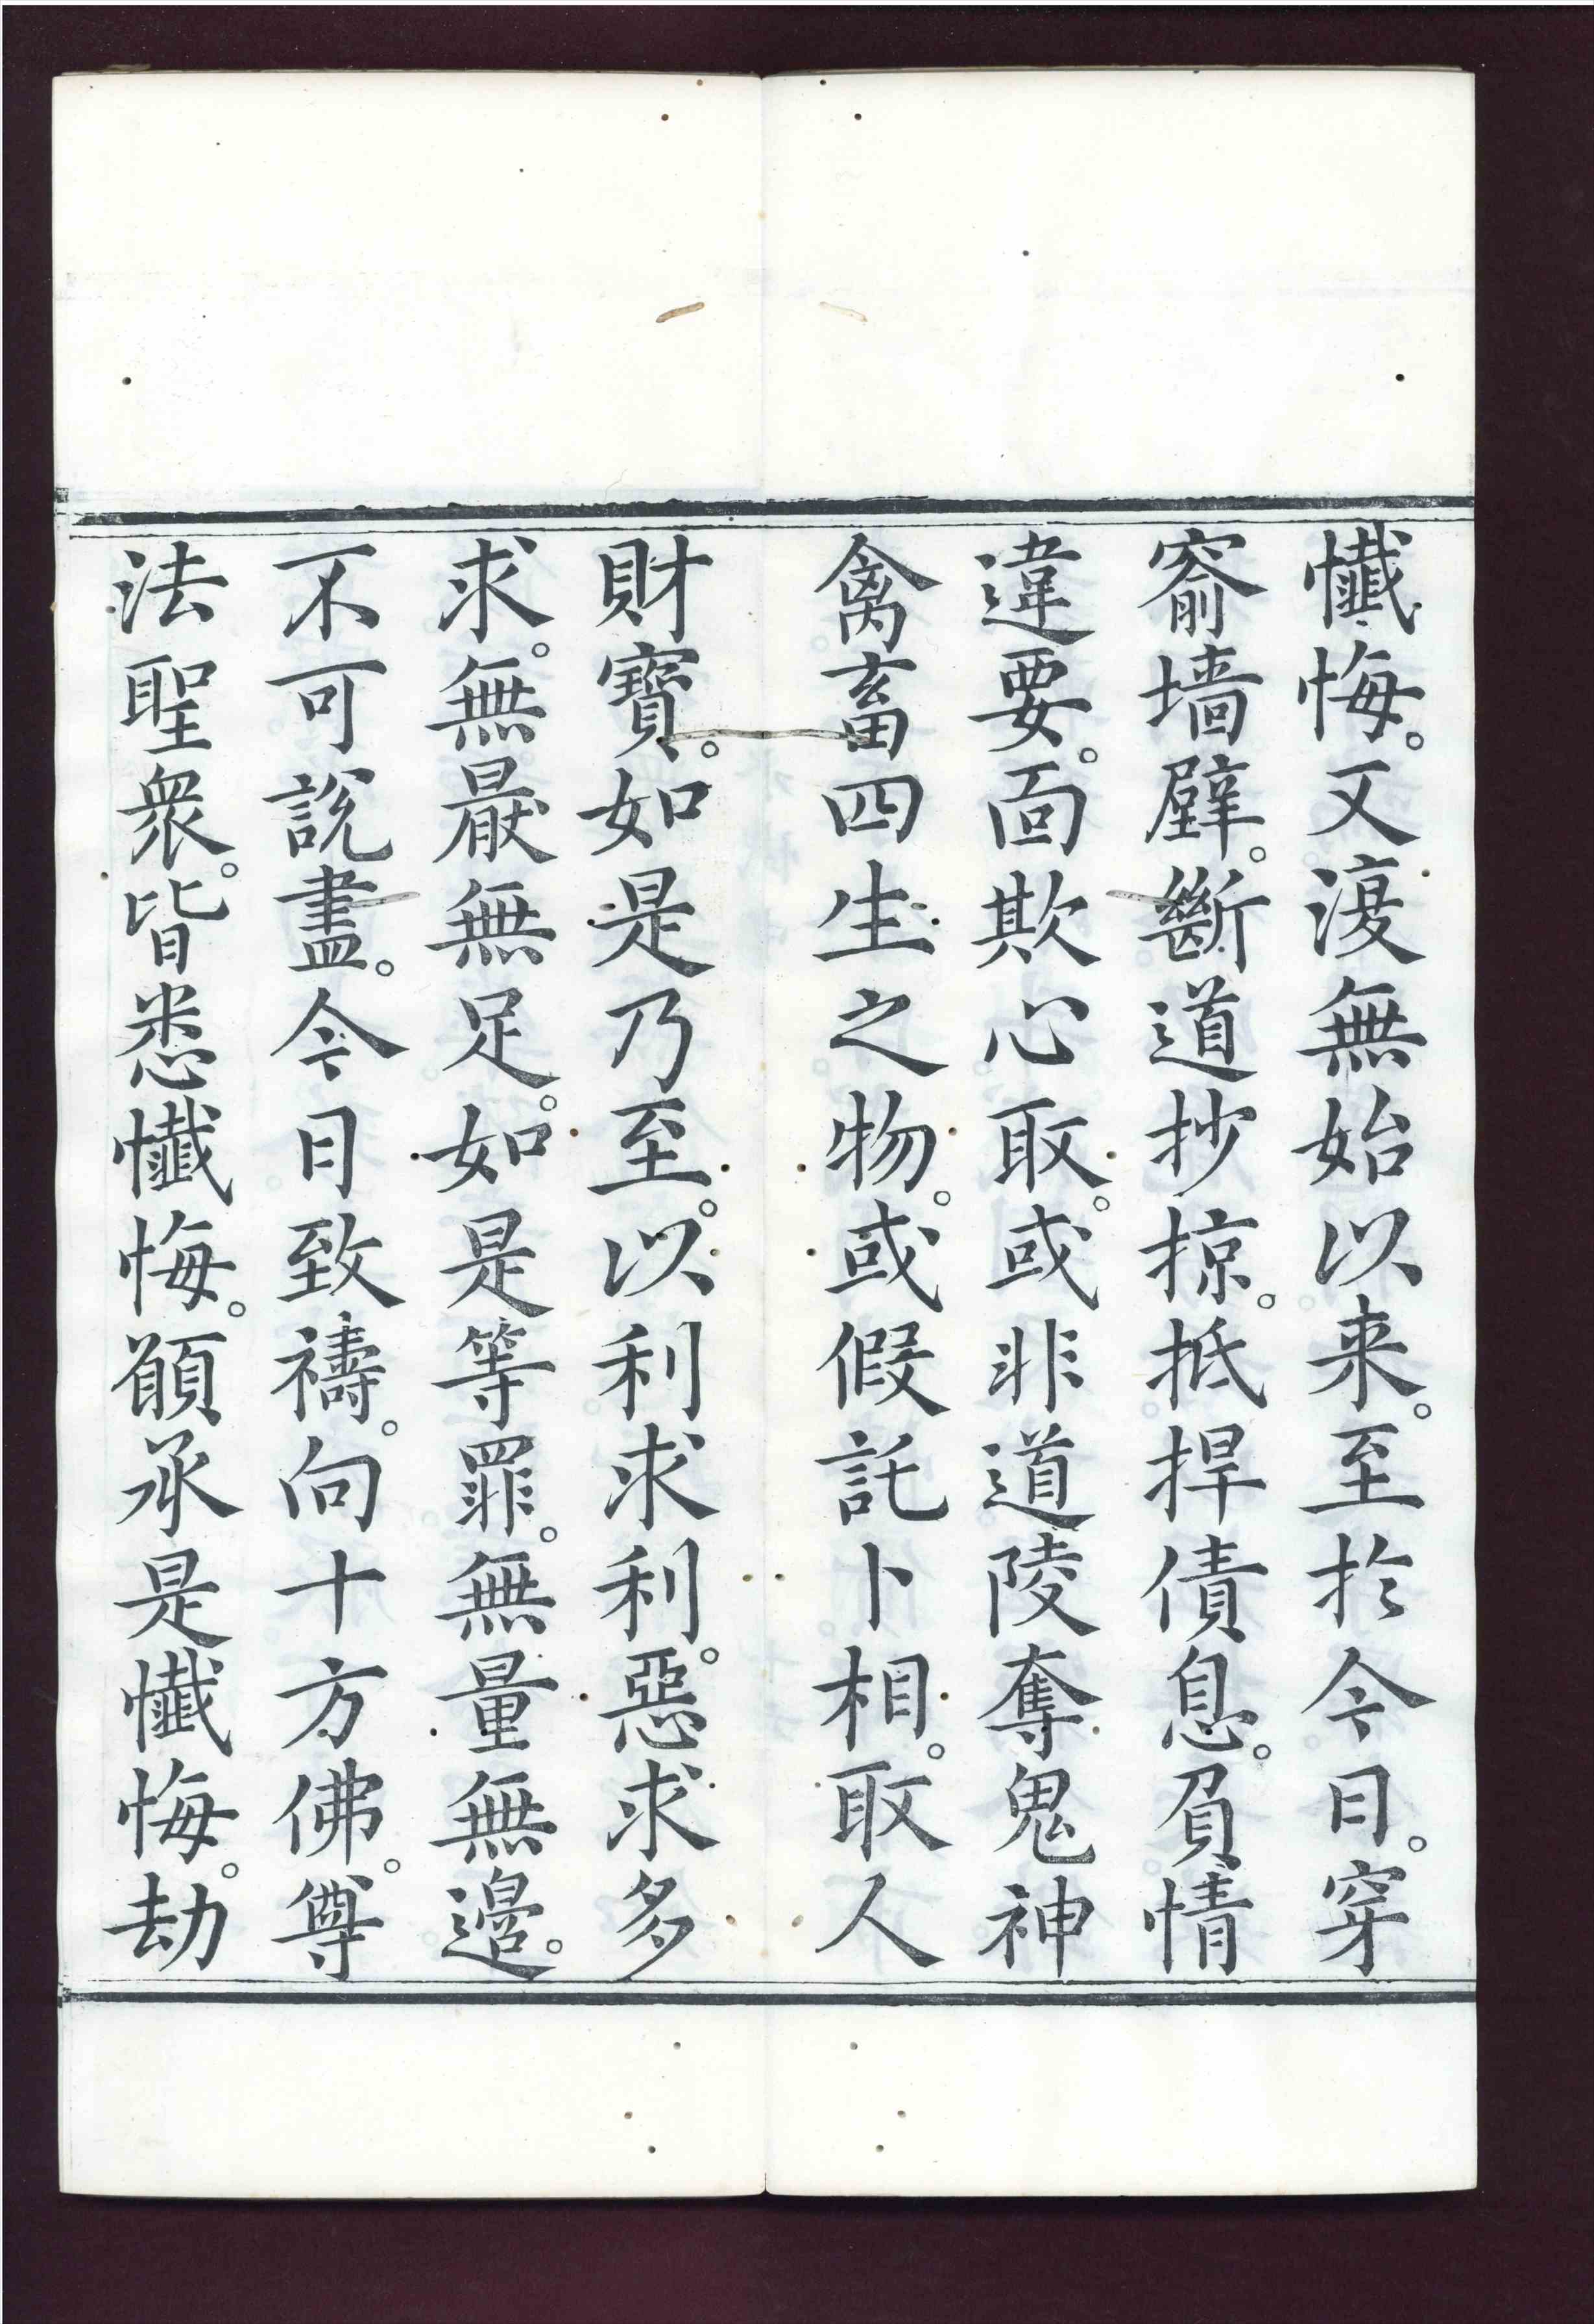 懺悔。又復無始以来。至於今日。穿
窬墙壁。斷道抄掠。抵捍債息。負情
違要。面欺心取。或非道陵奪鬼神
禽畜四生之物。或假託卜相。取人
財寶。如是乃至。以利求利。惡求多
求。無厭無足。如是等罪。無量無邊。
不可說盡。今日致禱。向十方佛。尊
法聖衆。皆悉懺悔。願承是懺悔。劫